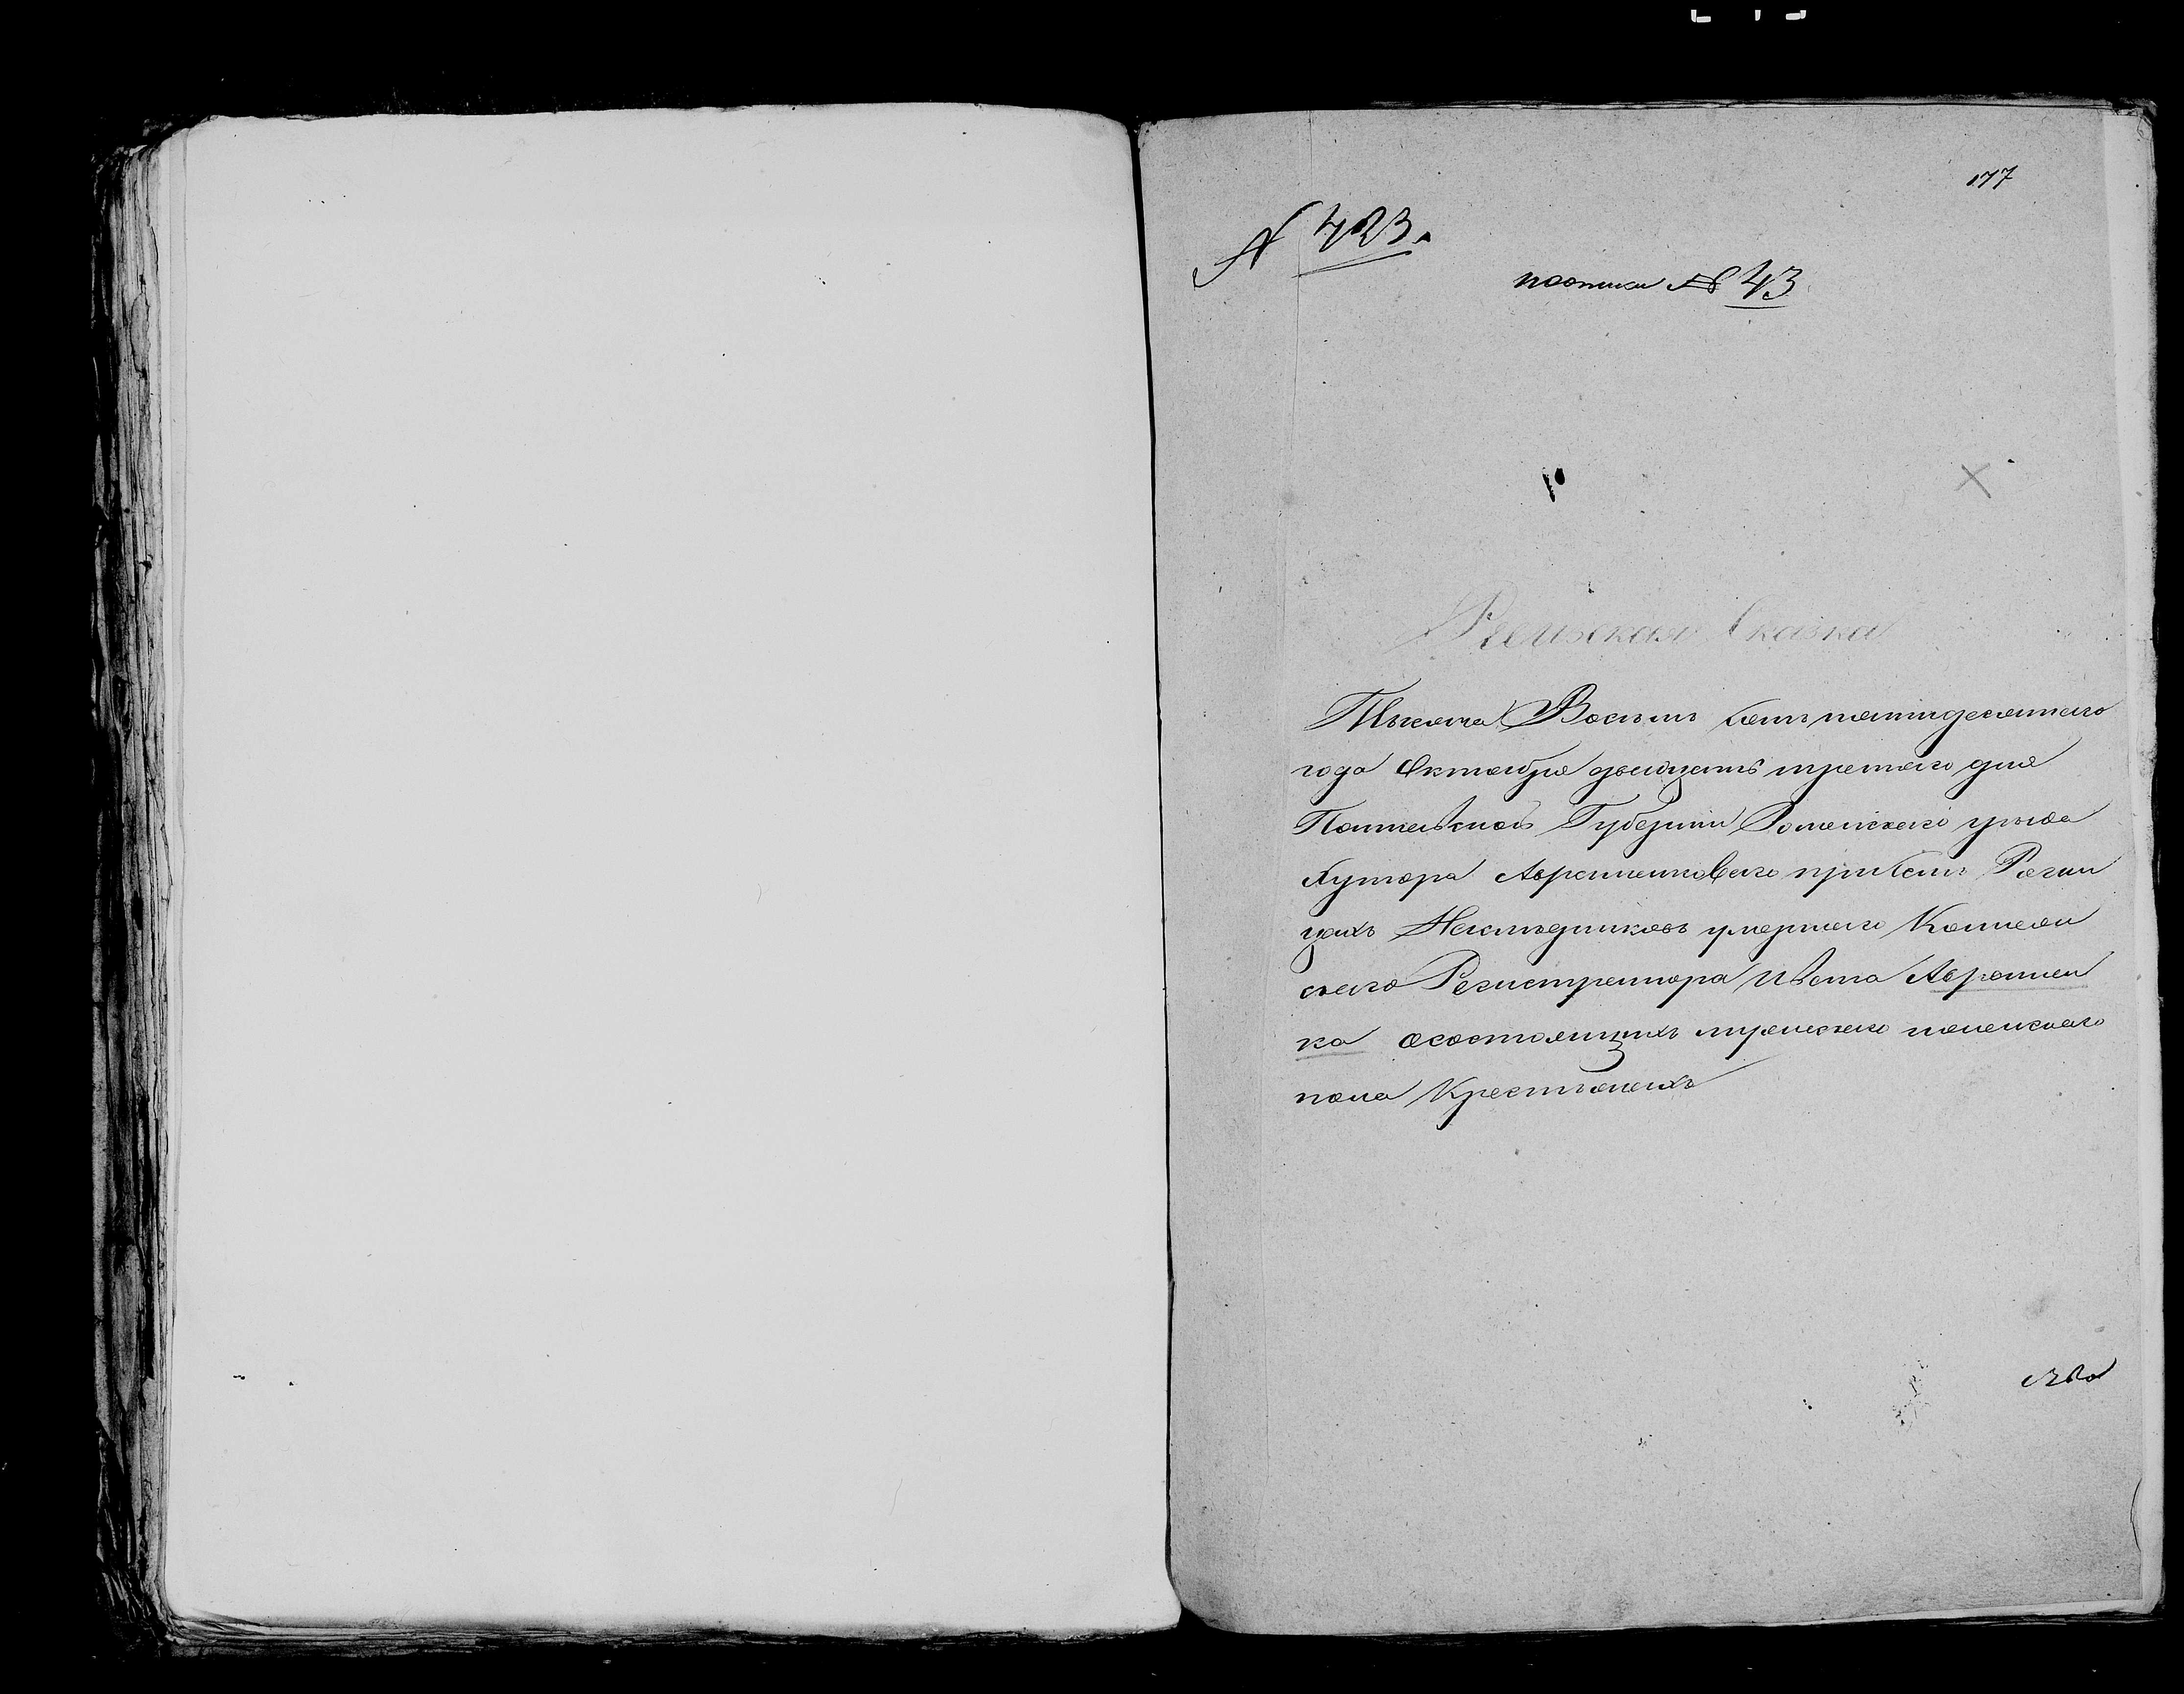 177
№ 423.
поопики № 43
Ревизская Сказка
Тысяча Восемь сотъ пятидесятаго
года Октября двадцать третьяго дня
Полтавской Губерніи Роменскаго уѣзда
Хутора Авраменковаго при селѣ Рогин
цахъ Наслѣдниковъ умершаго Коллеж
скаго Регистратора Аврамен
ка осостоящихъ мужескаго и женскаго
пола Крестьянахъ